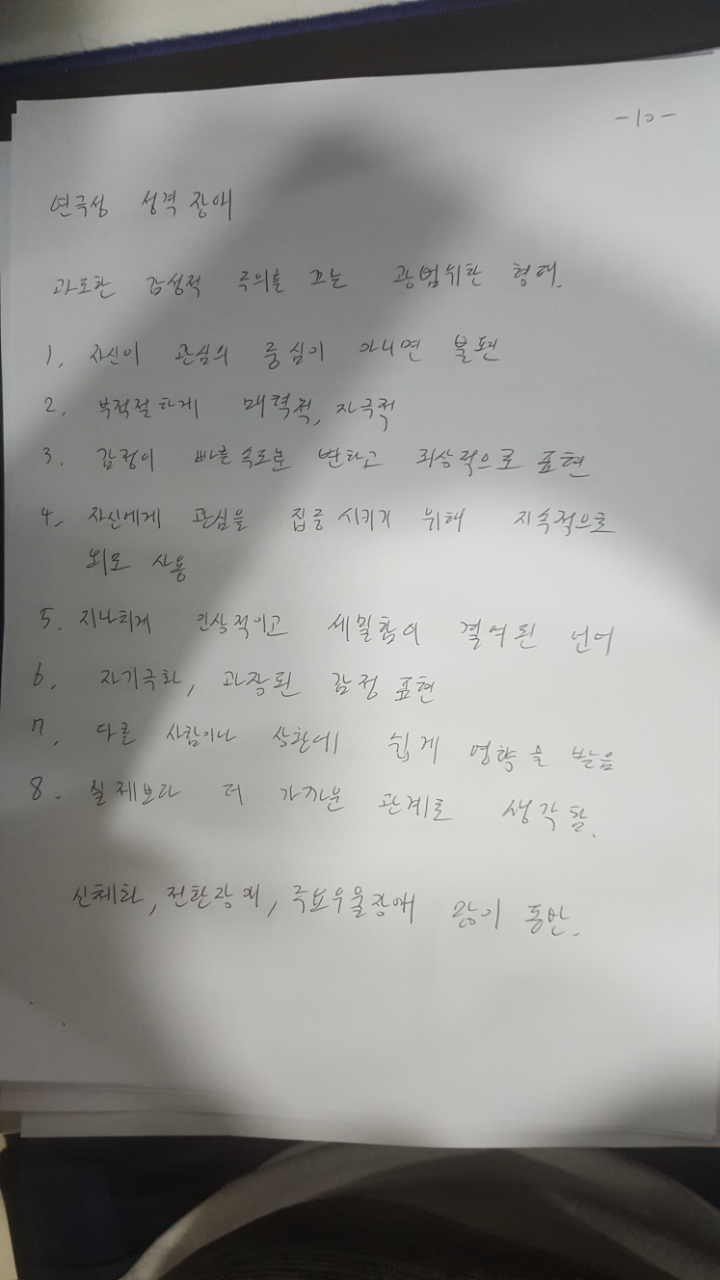 -10-
연극성 성격 장애
과도한 감성적 주의를 끄는 광범위한 형태.
1. 자신이 관심의 중심이 아니면 불편
2. 부적절하게 매력적, 자극적
3. 감정이 빠른 속도로 변하고 피상적으로 표현
4. 자신에게 관심을 집중시키기 위해 지속적으로
외모 사용
5. 지나치게 인상적이고 세밀함이 결여된 언어
6. 자기극화, 과장된 감정 표현
7. 다른 사람이나 상황에 쉽게 영향을 받음
8. 실제보다 더 가까운 관계로 생각함.
신체화, 전환장애, 주요우울장애 많이 동반.